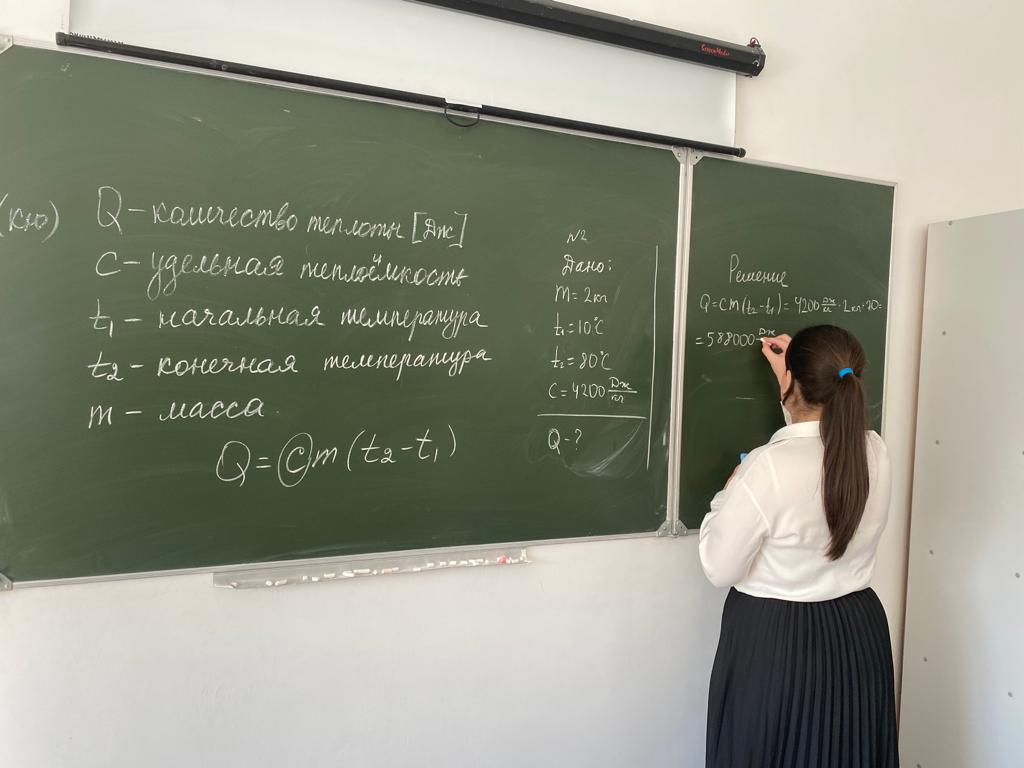 ScreenMedia
(кю)
Q - количество теплоты [Дж]
c - удельная теплоёмкость
t₁ - начальная температура
t₂ - конечная температура
m - масса
Q = c m (t₂ - t₁)
N2
Дано:
m = 2кг
t₁ = 10°C
t₂ = 80°C
C = 4200 Дж/кг
Q - ?
Решение
Q = cm (t₂ - t₁) = 4200 Дж/кг · 2кг · 70 =
= 588000 Дж